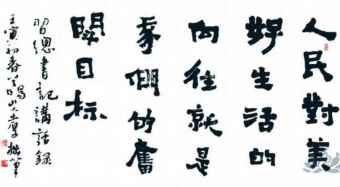 人民對美
好生活的
向往就是
我們的奮
鬥目标
習總書記講話錄
壬寅初春